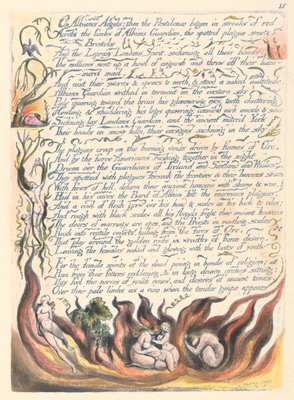 15
On Albions Angels: then the Pestilence began in streaks of red
Across the limbs of Albions Guardian, the spotted plague smote
Bristols
And the Leprous Londons Spirit, sickening all their bands:
The millions sent up a howl of anguish and threw off their
mail
And cast their swords & spears to earth, & stood a naked multitude.
Albions Guardian writhed in torment on the eastern sky
Pale quivring toward the brain his glimmering eyes, teeth chattering
Howling & shuddering his legs quivering; convuls'd each muscle & sinew
Sickning lay Londons Guardian, and the ancient miter'd York
Their heads on snowy hills, their ensigns sickning in the sky
The plagues creep on the burning winds driven by flames of Orc,
And by the fierce Americans rushing together in the night
Driven o'er the Guardians of Ireland and Scotland and Wales
They spotted with plagues forsook the frontiers & their banners
With fires of hell, deform their ancient heavens with shame & woe.
Hid in his caves the Bard of Albion felt the enormous plagues.
And a cowl of flesh grew o'er his head & scales on his back & ribs;
And rough with black scales all his Angels fright their ancient heavens
The doors of marriage are open, and the Priests in rustling scales
Rush into reptile coverts, hiding from the fires of Orc,
That play around the golden roofs in wreaths of fierce desire,
Leaving the females naked and glowing with the lusts of youth
For the female spirits of the dead pining in bonds of religion;
Run from their fetters reddening, & in long drawn arches sitting:
They feel the nerves of youth renew, and desires of ancient times,
Over their pale limbs as a vine when the tender grape appears